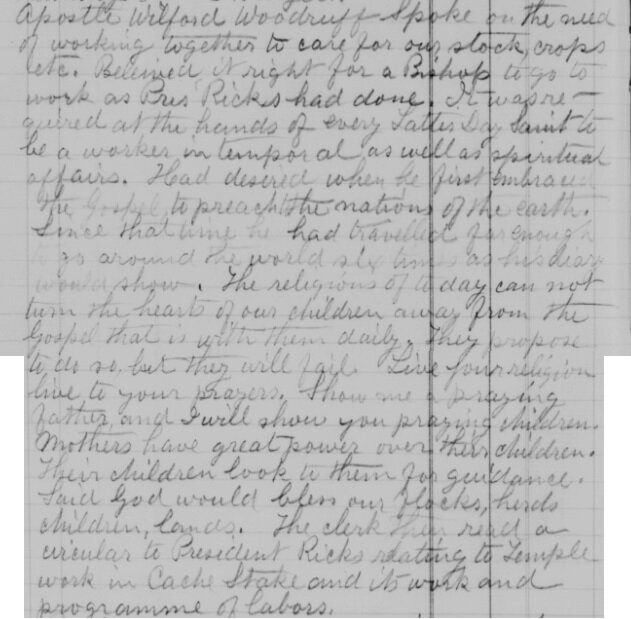 Apostle Wilford Woodruff Spoke on the need
of working together to care for our stock, crops
etc. Beleived it right for a Bishop to go to
work as Pres Ricks had done. It was re-
quired at the hands of every Latter Day Saint to
be a worker in temporal as well as spiritual
affairs. Had desired when he first embraced
the Gospel to preach the nations of the earth.
Since that time he had travelled far enough
to go around the world six times as his diary
would show. The religions of to day can not
turn the hearts of our children away from the
Gospel that is with them daily. They propose
to do so, but they will fail. Live your religion
live to your prayers. Show me a praying
father, and I will show you praying children.
Mothers have great power over their children.
Their children look to them for guidance.
Said God would bless our flocks, herds
children, lands. The clerk then read a
circular to President Ricks relating to Temple
work in Cache Stake and its work and
programme of labors.